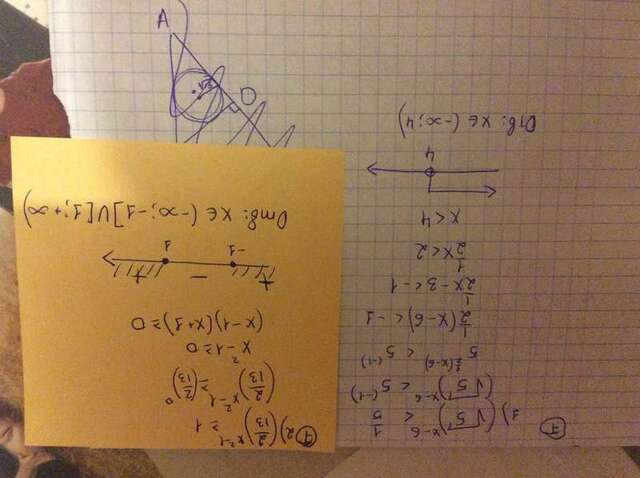 7
1) (√5)^(x-6) < 1/5
(√5)^(x-6) < 5^(-1)
5^(1/2(x-6)) < 5^(-1)
1/2(x-6) < -1
1/2x-3 < -1
1/2x < 2
x < 4
4
Отв: x∈(-∞; 4)
7 2) (2/13)^(x²-1) ≥ 1
(2/13)^(x²-1) ≥ (2/13)^0
x²-1 ≥ 0
(x-1)(x+1) ≥ 0
+ - +
-1 1
Отв: x∈(-∞; -1]∪[1; +∞)
A